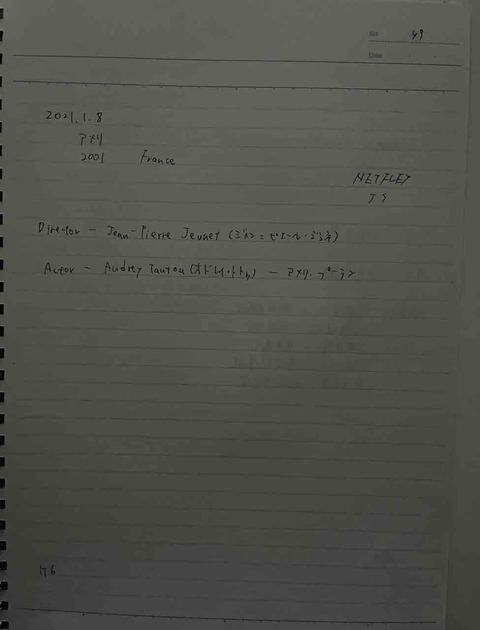 No. 49
Date
2021.1.8
アメリ
2001 France
NETFLET
JS
Director - Jean-Pierre Jeunet (ジャン=ピエール・ジュネ)
Actor - Audrey Tautou (オドレイ・トトゥ) - アメリ・プーラン
176